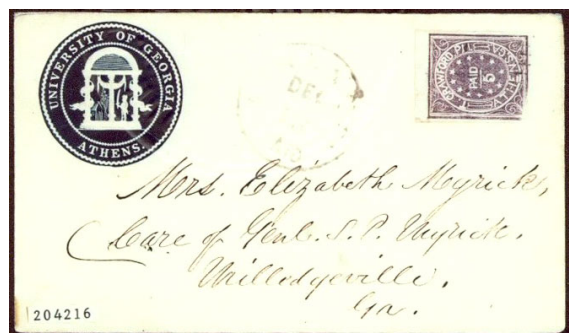 UNIVERSITY OF GEORGIA
ATHENS.
DEC
T. CRAWFORD, P.M.
PAID
5
ATHENS, GA.
Mrs. Elizabeth Myrick,
Care of Genl. S. P. Myrick.
Milledgeville.
Ga.
204216